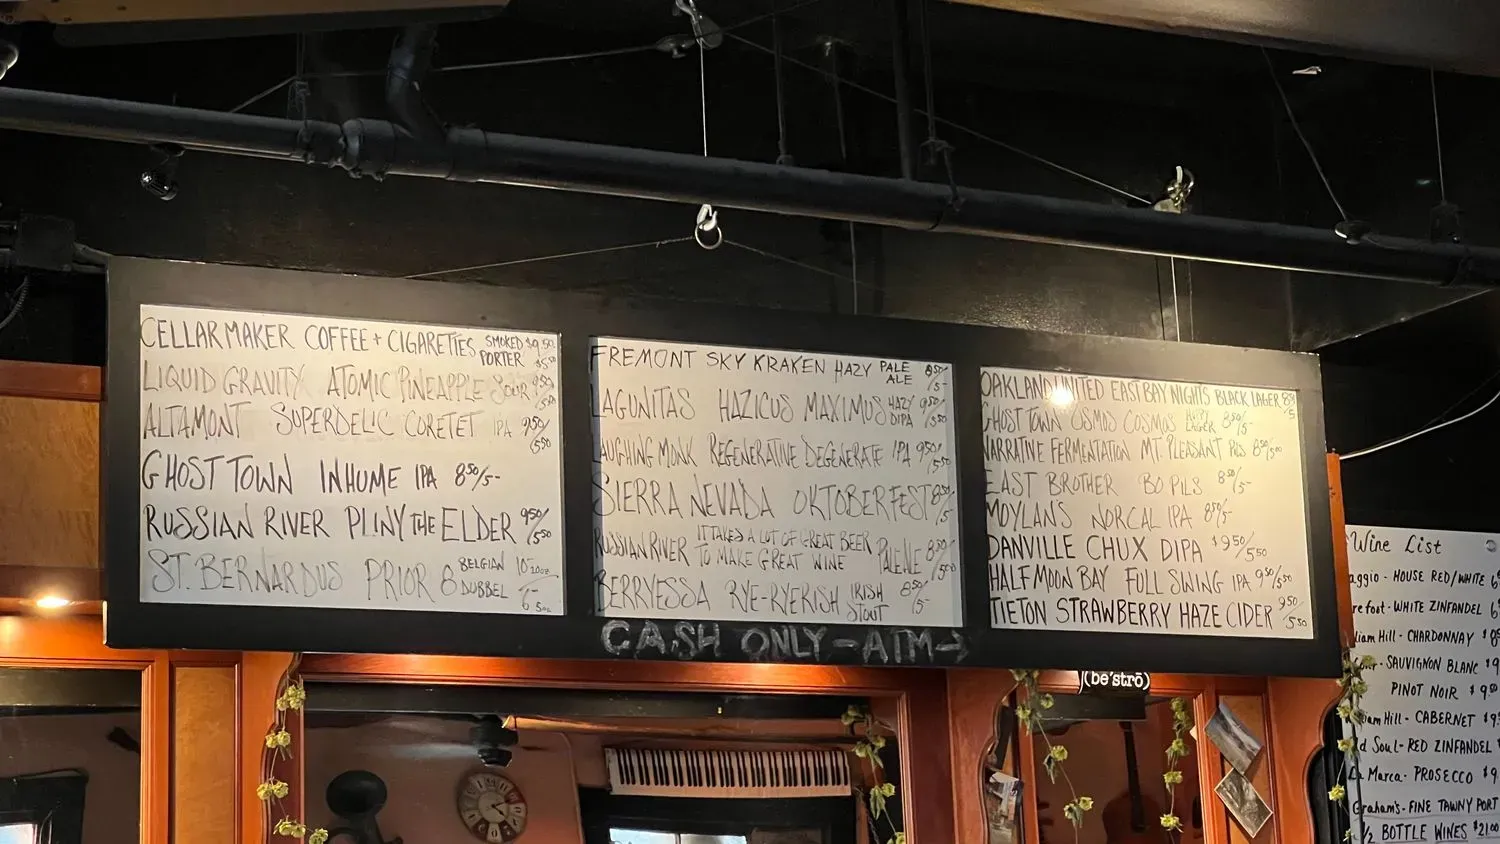 CELLARMAKER COFFEE + CIGARETTES SMOKED PORTER $9.50 $5.50
LIQUID GRAVITY ATOMIC PINEAPPLE SOUR 9.50/5.50
ALTAMONT SUPERDELIC CORETET IPA 9.50/5.50
GHOST TOWN INHUME IPA 8.50/5-
RUSSIAN RIVER PLINY THE ELDER 9.50/5.50
ST. BERNARDUS PRIOR 8 BELGIAN DUBBEL 10- 10oz 6- 5oz
FREMONT SKY KRAKEN HAZY PALE ALE 8.50/5-
LAGUNITAS HAZICUS MAXIMUS HAZY DIPA 9.50/5.50
LAUGHING MONK REGENERATIVE DEGENERATE IPA 9.50/5.50
SIERRA NEVADA OKTOBERFEST 8.50/5-
RUSSIAN RIVER IT TAKES A LOT OF GREAT BEER TO MAKE GREAT WINE PALE ALE 8.50/5.00
BERRYESSA RYE-RYERISH IRISH STOUT 8.50/5-
CASH ONLY - ATM →
OAKLAND UNITED EAST BAY NIGHTS BLACK LAGER 8.50/5
GHOST TOWN OSMOS COSMOS HOPPY LAGER 8.50/5-
NARRATIVE FERMENTATION MT. PLEASANT PILS 8.50/5.00
EAST BROTHER BO PILS 8.50/5-
MOYLANS NORCAL IPA 8.50/5-
DANVILLE CHUX DIPA $9.50/5.50
HALF MOON BAY FULL SWING IPA 9.50/5.50
TIETON STRAWBERRY HAZE CIDER 9.50/5.50
(be'strō)
Wine List
aggio - HOUSE RED/WHITE 6
refoot - WHITE ZINFANDEL 6
liam Hill - CHARDONNAY $8
SAUVIGNON BLANC $9
PINOT NOIR $9.00
iam Hill - CABERNET $9
d Soul - RED ZINFANDEL $
La Marca - PROSECCO $9
Graham's - FINE TAWNY PORT
1/2 BOTTLE WINES $21.00